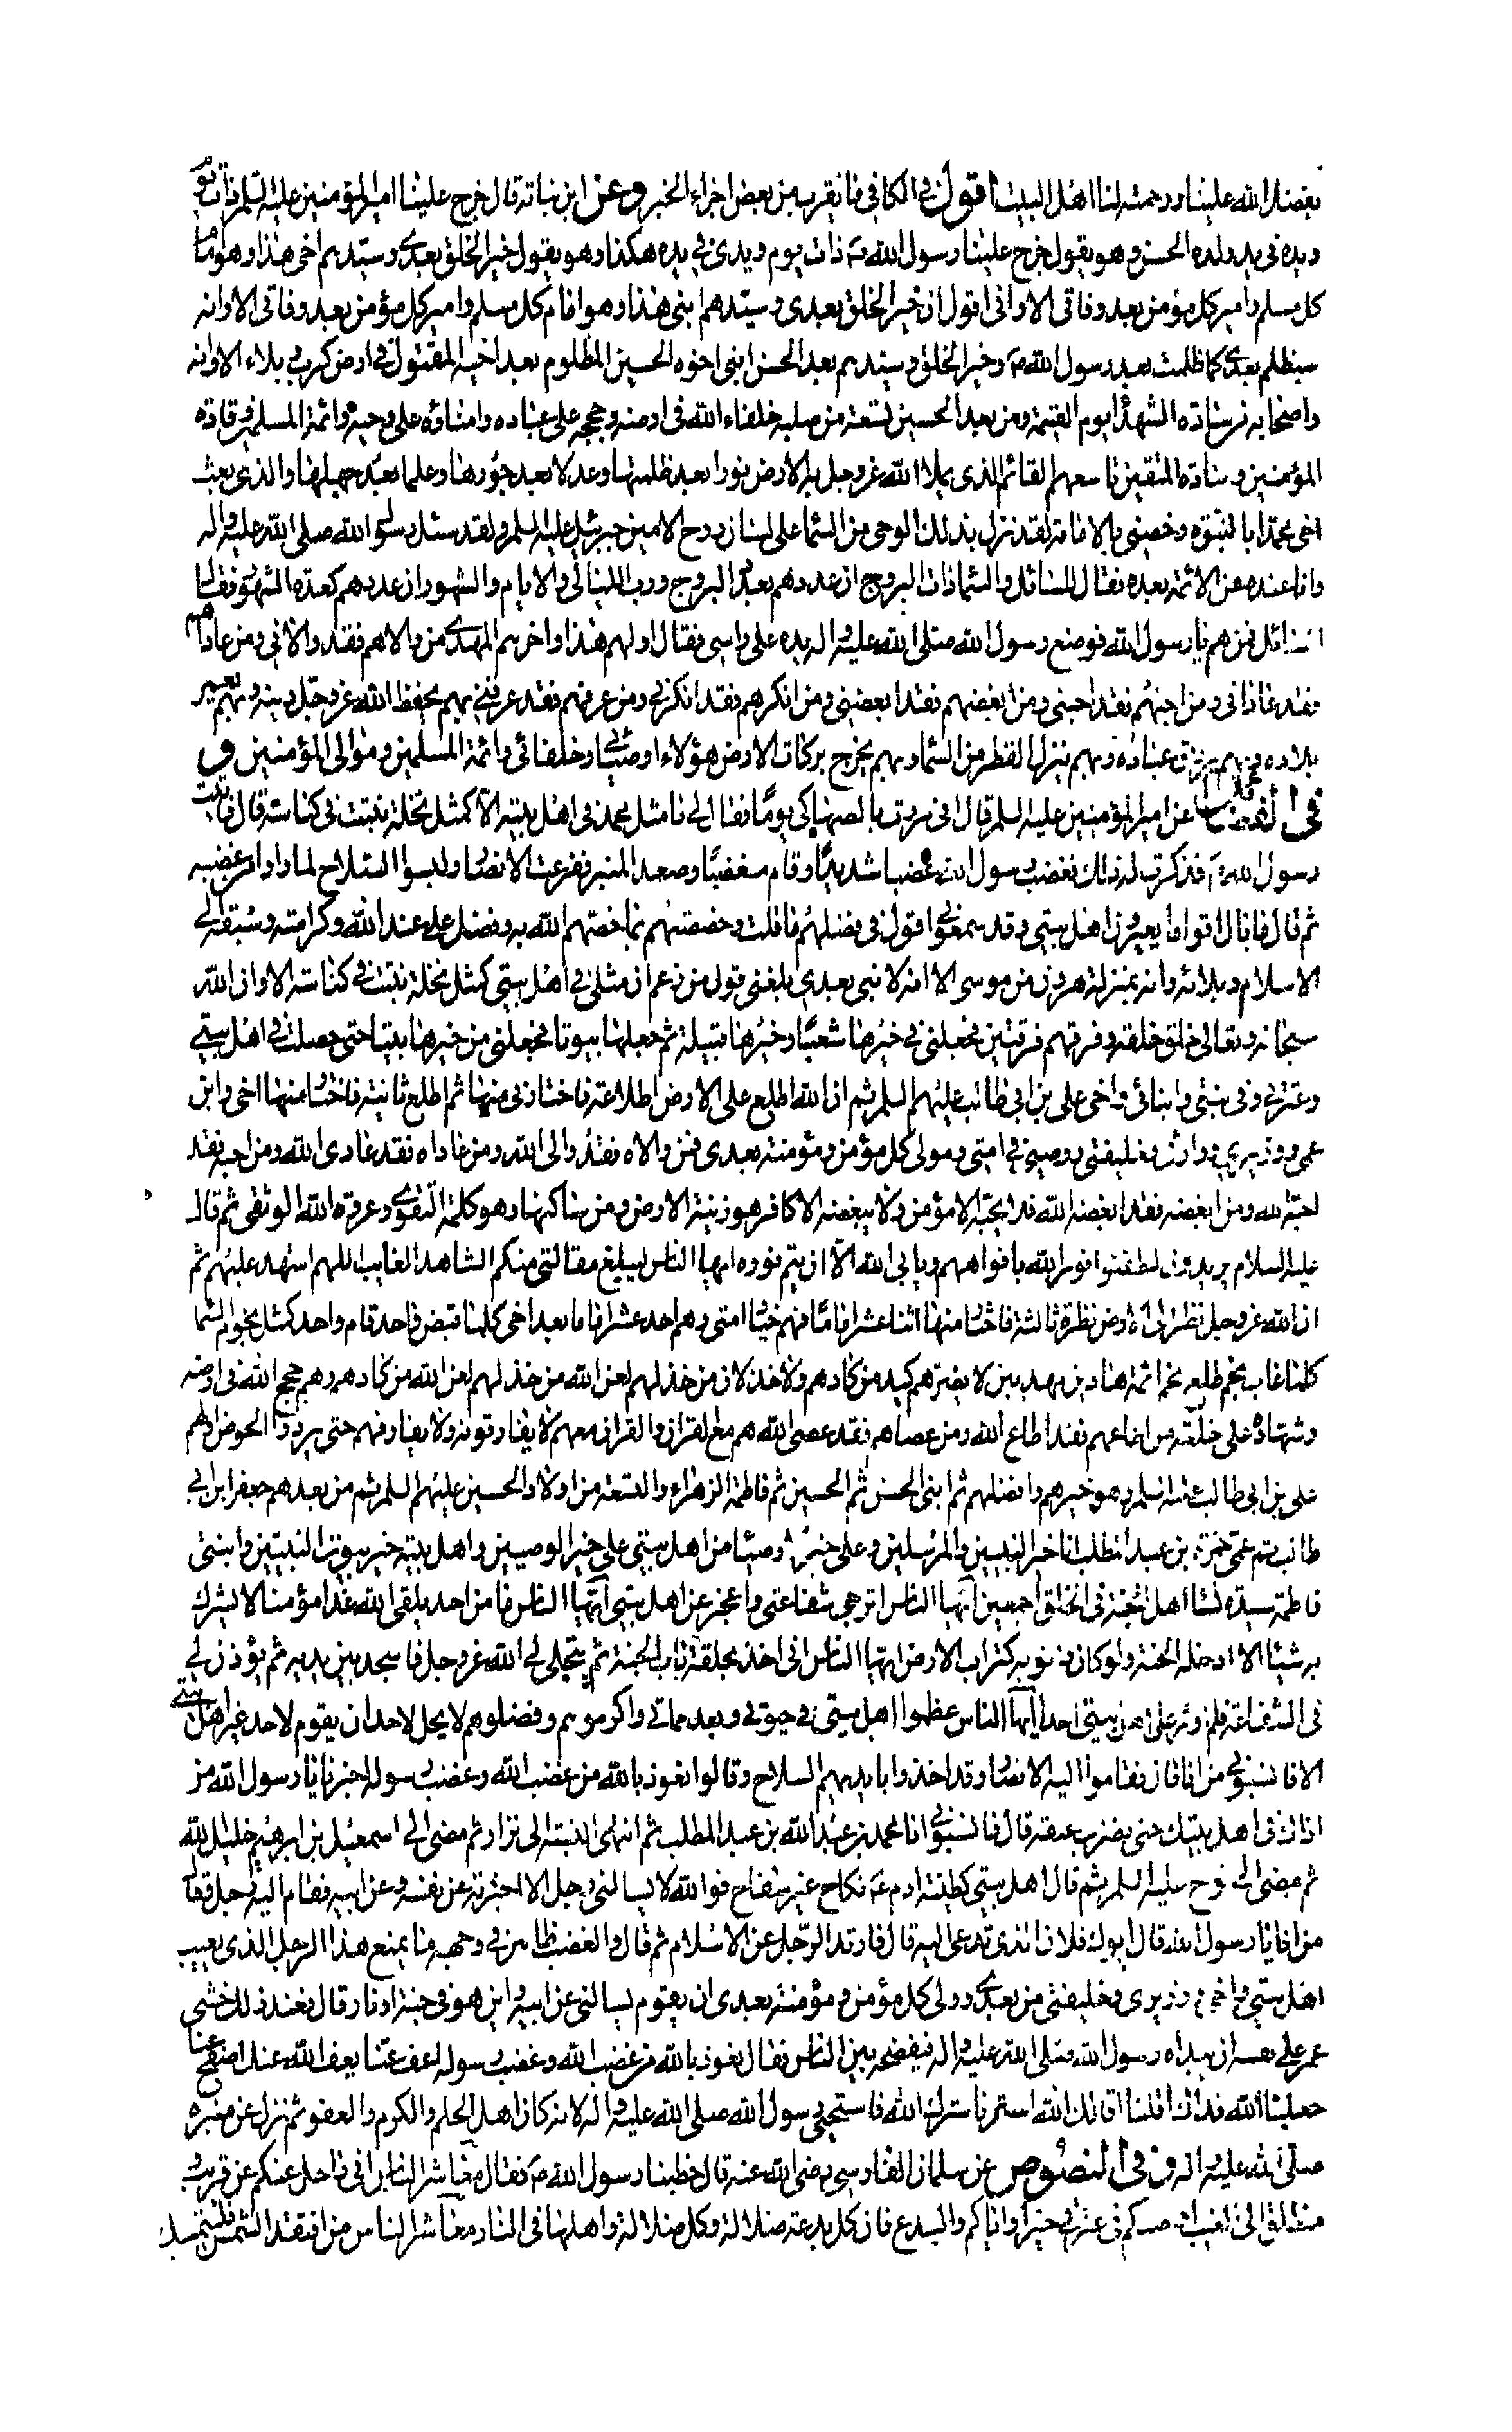 بفضل الله علينا ورحمته لنا اهل البيت اقول في الكافي ما يقرب من بعض اجزاء الخبر وعن ابن نباته قال خرج علينا امير المؤمنين عليه السلم ذات يوم
ويده في يد ولده الحسن وهو يقول خرج علينا رسول الله ص ذات يوم ويدى في يده هكذا وهو يقول خير الخلق بعدي وسيدهم اخى هذا وهو امام
كل مسلم وامير كل مؤمن بعد وفاتى الا وانى اقول ان خير الخلق بعدى وسيدهم ابنى هذا وهو امام كل مسلم وامير كل مؤمن بعد وفاتى الا وانه
سيظلم بعدي كما ظلمت بعد رسول الله ص وخير الخلق وسيدهم بعد الحسن ابنى اخوه الحسين المظلوم بعد اخيه المقتول في ارض كرب وبلاء الا وانه
واصحابه من سادة الشهدا يوم القيمة ومن بعد الحسين تسعة من صلبه خلفاء الله فى ارضه وحججه على عباده وامناؤه على وحيه وائمة المسلمين وقادة
المؤمنين وسادة المتقين تاسعهم القائم الذى يملا الله عز وجل به الارض نورا بعد ظلمتها وعدلا بعد جورها وعلما بعد جهلها والذى بعث
اخى محمدا بالنبوة وخصنى بالامامة لقد نزل بذلك الوحى من السما على لسان روح الامين جبرئيل عليه السلم ولقد سئل رسول الله صلى الله عليه واله
وانا عنده عن الائمة بعده فقال للسائل والسما ذات البروج ان عددهم بعدد البروج ورب الليالى والايام والشهور ان عددهم كعدة الشهور فقال
السائل فمن هم يا رسول الله فوضع رسول الله صلى الله عليه واله يده على راسى فقال اولهم هذا واخرهم المهدي من والاهم فقد والانى ومن عاداهم
فقد عادانى ومن احبهم فقد احبنى ومن ابغضهم فقد ابغضنى ومن انكرهم فقد انكرنى ومن عرفهم فقد عرفنى بهم يحفظ الله عز وجل دينه وبهم يعمر
بلاده وبهم يرزق عباده وبهم ينزل القطر من السماء وبهم يخرج بركات الارض هؤلاء اوصيائى وخلفائى وائمة المسلمين وموالى المؤمنين و
عن امير المؤمنين عليه السلم قال انى مررت بالصهاكى يوما فقال لى ما مثل محمد فى اهل بيته الا كمثل نخلة نبتت فى كناسة قال فاتيت
رسول الله ص فذكرت له ذلك فغضب رسول الله غضبا شديدا وقام مغضبا وصعد المنبر ففزعت الانصار ولبسوا السلاح لما راوا من غضبه
ثم قال ما بال اقوام يعيرون اهل بيتى وقد سمعوا اقول فى فضلهم ما قلت وخصصتهم بما خصهم الله به وفضل على عند الله وكرامته وسبقه الى
الاسلام وبلائه وانه بمنزلة هرون من موسى الا انه لا نبى بعدي بلغنى قول من زعم ان مثلى فى اهل بيتى كمثل نخلة نبتت في كناسة الا وان الله
سبحانه وتعالى خلق خلقه وفرقهم فرقتين فجعلنى فى خيرها شعبا وخيرها قبيلة ثم جعلها بيوتا فجعلنى من خيرها بيتا حتى حصلت في اهل بيتى
وعترتي وفى بنتى وابنائى واخى على بن ابى طالب عليهم السلم ثم ان الله اطلع على الارض اطلاعة فاختارنى منها ثم اطلع ثانية فاختار منها اخى وابن
عمى ووزيرى ووارثى وخليفتى ووصيى فى امتى ومولى كل مؤمن ومؤمنة بعدى فمن والاه فقد والى الله ومن عاداه فقد عادى الله ومن احبه فقد
احبه الله ومن ابغضه فقد ابغضه الله فلا يحبه الا مؤمن ولا يبغضه الا كافر هو زينة الارض ومن ساكنها وهو كلمة التقوى وعروة الله الوثقى ثم قال
عليه السلام يريدون ليطفئوا نور الله بافواههم ويابى الله الا ان يتم نوره ايها الناس ليبلغ مقالتى منكم الشاهد الغايب اللهم اشهد عليهم ثم
ان الله عز وجل نظر الى الارض نظرة ثالثة فاختار منها اثنا عشر اماما فهم خيار امتى وهم احد عشر اماما بعد اخى كلما قبض واحد قام واحد كمثل نجوم السما
كلما غاب نجم طلع نجم ائمة هادين مهديين لا يضرهم كيد من كادهم ولا خذلان من خذلهم لعن الله من خذلهم لعن الله من كادهم وهم حجج الله فى ارضه
وشهداؤه على خلقه من اطاعهم فقد اطاع الله ومن عصاهم فقد عصى الله هم مع القران والقران معهم لا يفارقونه ولا يفارقهم حتى يردوا الحوض اولهم
على بن ابى طالب عليه السلم وهو خيرهم وافضلهم ثم ابنى الحسن ثم الحسين ثم فاطمة الزهراء والتسعة من اولاد الحسين عليهم السلم ثم من بعدهم جعفر ابن ابى
طالب ثم عمى حمزة بن عبد المطلب انا خير النبيين والمرسلين وعلى خير الاوصيا من اهل بيتى على خير الوصيين واهل بيته خير بيوت النبيين وابنتى
فاطمة سيدة نسا اهل الجنة فى الخلق اجمعين ايها الناس اترجى شفاعتى واعجز عن اهل بيتى ايها الناس ما من احد يلقى الله غدا مؤمنا لا يشرك
به شيئا الا ادخله الجنة ولو كان ذنوبه كتراب الارض ايها الناس انى اخذ بحلقة باب الجنة ثم يتجلى لى الله عز وجل فاسجد بين يديه ثم يؤذن لى
فى الشفاعة فلم اوثر على اهل بيتى احدا ايها الناس عظموا اهل بيتى في حيوتى وبعد مماتى واكرموهم وفضلوهم لا يحل لاحد ان يقوم لاحد غير اهل بيتى
الا فانسبونى من انا قال فقاموا اليه الانصار وقد اخذوا بايديهم السلاح وقالوا نعوذ بالله من غضب الله وغضب رسوله اخبرنا يا رسول الله من
اذاك فى اهل بيتك حتى نضرب عنقه قال فانسبونى انا محمد بن عبد الله بن عبد المطلب ثم انتهى النسبة الى نزار ثم مضى الى اسمعيل بن ابرهيم خليل الله
ثم مضى الى نوح عليه السلم ثم قال اهل بيتى كطينة ادم ع نكاح غير سفاح فوالله لا يسالنى رجل الا اخبرته عن نفسه وعن ابيه فقام اليه رجل فقال
من انا يا رسول الله قال ابوك فلان الذى تدعى اليه قال فارتد الرجل عن الاسلام ثم قال والغضب ظاهر في وجهه ما يمنع هذا الرجل الذى يعيب
اهل بيتى واخى ووزيرى وخليفتى من بعدي وولى كل مؤمن ومؤمنة بعدى ان يقوم يسالنى عن ابيه اين هو فى جنة او نار قال فعند ذلك خشى
عمر على نفسه ان يبداه رسول الله صلى الله عليه واله فيفضحه بين الناس فقال نعوذ بالله من غضب الله وغضب رسوله اعف عنا يعف الله عنك اصفح عنا
جعلنا الله فداك اقلنا اقالك الله استرنا سترك الله فاستحيى رسول الله صلى الله عليه واله لانه كان اهل الحلم والكرم والعفو ثم نزل عن منبره
صلى الله عليه واله وفى النصوص عن سلمان الفارسى رضى الله عنه قال خطبنا رسول الله ص فقال معاشر الناس انى راحل عنكم عن قريب
منطلق الى المغيب اوصيكم فى عترتى خيرا واياكم والبدع فان كل بدعة ضلالة وكل ضلالة واهلها فى النار معاشر الناس من افتقد الشمس فليتمسك